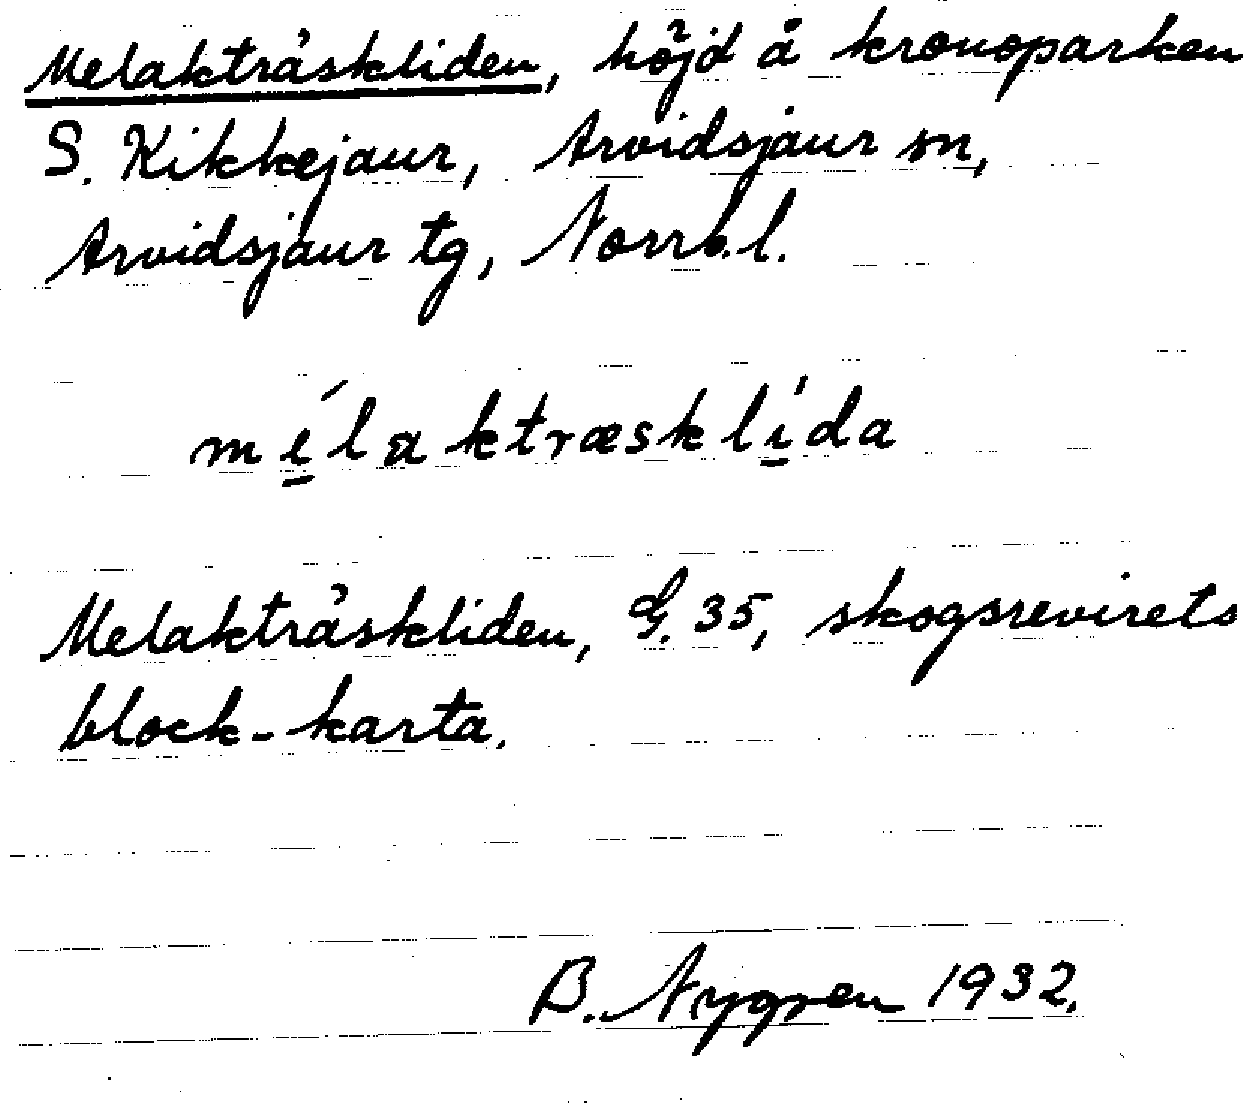 Melakträskliden, höjd å kronoparken
S. Kikkejaur, Arvidsjaur sn,
Arvidsjaur tg, Norrb.l.
mélaktræsklída
Melakträskliden, G. 35, skogsrevirets
block-karta.
B. Nygren 1932.